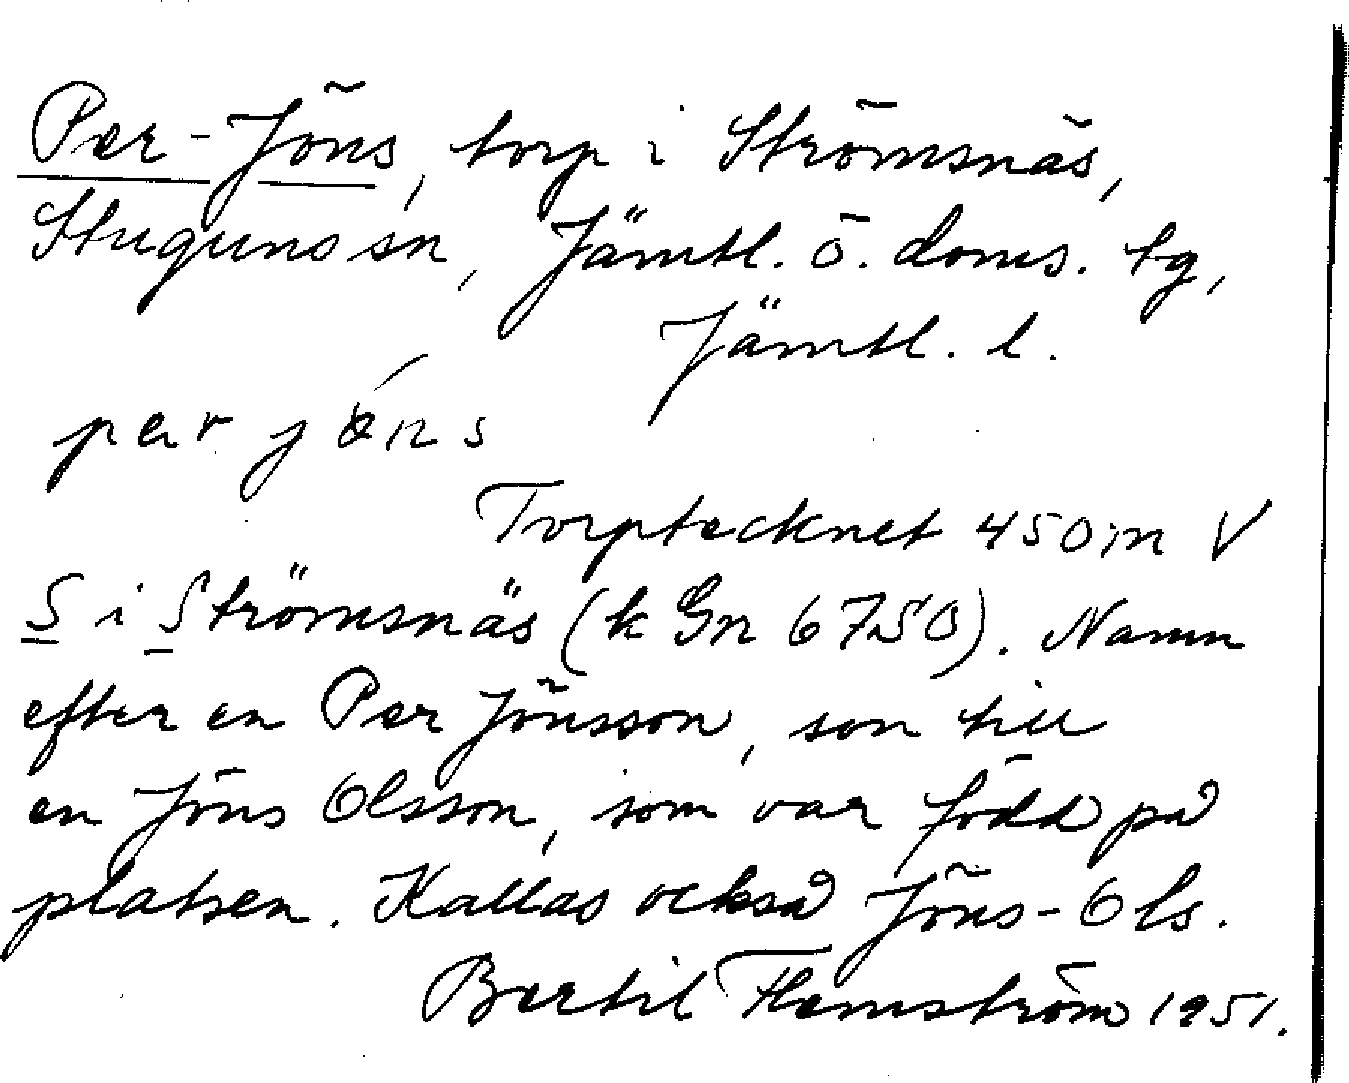 Per-Jöns, torp i Strömsnäs,
Stuguns sn, Jämtl. ö. doms. tg,
Jämtl. l.
per jöns
Torptecknet 450 m V
S i Strömsnäs (k Gn 6750). Namn
efter en Per Jönsson, son till
en Jöns Olsson, som var född på
platsen. Kallas också Jöns-Ols.
Bertil Flemström 1951.